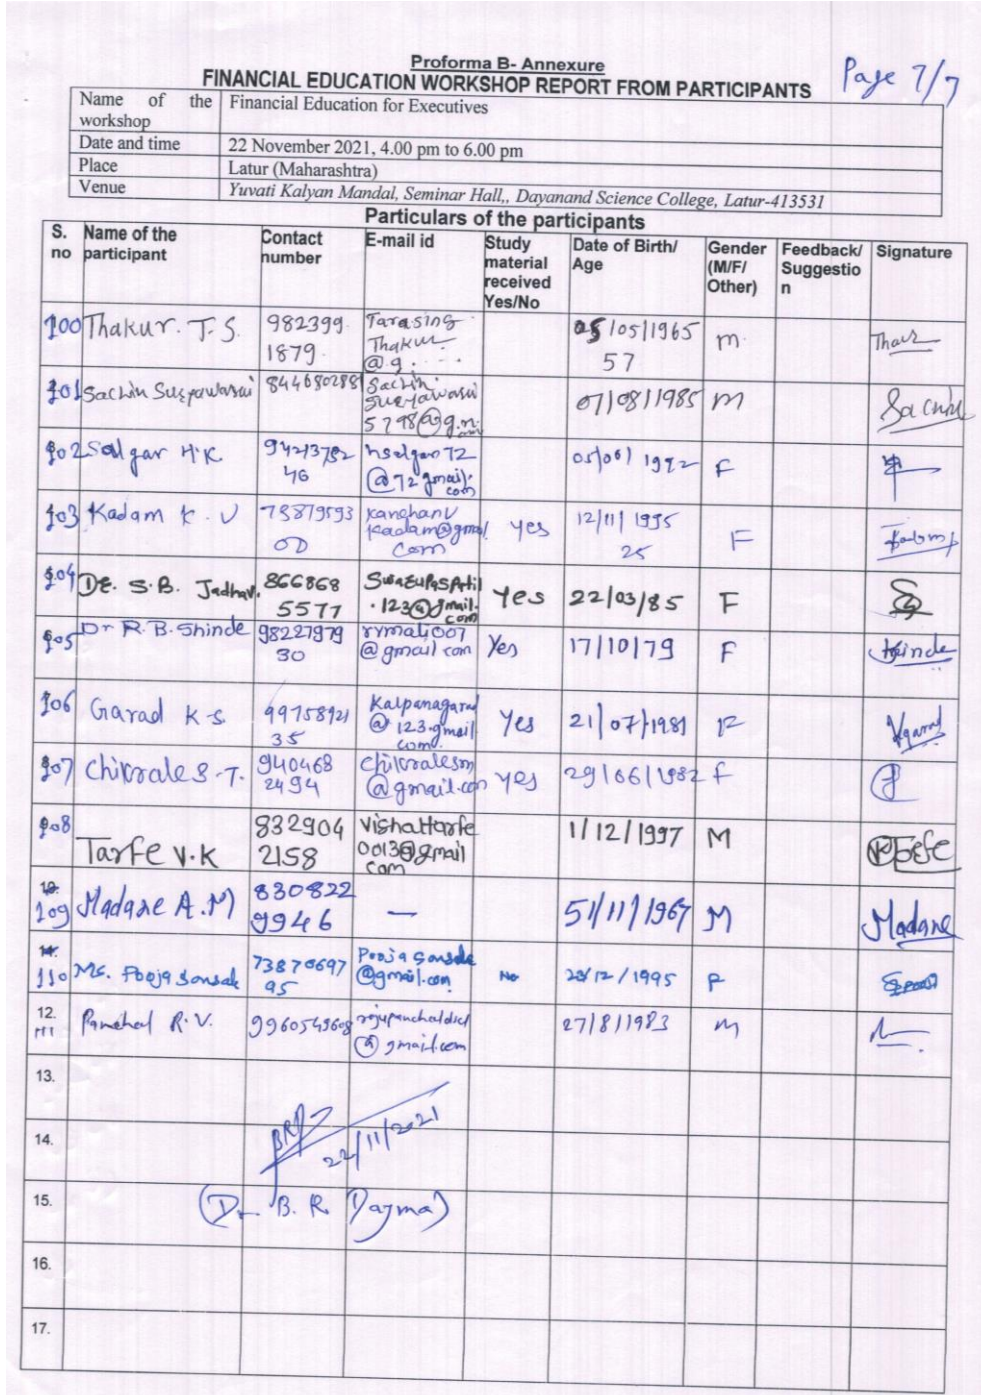 Proforma B- Annexure
FINANCIAL EDUCATION WORKSHOP REPORT FROM PARTICIPANTS
Page 7/7
Name of the workshop Financial Education for Executives
Date and time 22 November 2021, 4.00 pm to 6.00 pm
Place Latur (Maharashtra)
Venue Yuvati Kalyan Mandal, Seminar Hall,, Dayanand Science College, Latur-413531
Particulars of the participants
S. no Name of the participant Contact number E-mail id Study material received Yes/No Date of Birth/ Age Gender (M/F/ Other) Feedback/ Suggestio n Signature
100 Thakur. T. S. 982399 1879. Tarasing Thakur @g..... 05/05/1965 57 m.
101 Sachin 844680288 Sachin 07/08/1985 m Sachin
102 Salgar H.K 94213782 46 @72gmail.com F
103 Kadam K. V 73879593 00 kanchanv kadam@gmail com yes 12/11/1995 25 F
104 S.B. Jadhav. 866868 5577 .123@gmail.com Yes 22/03/85 F
105 Dr R.B. Shinde 98227979 30 @gmail com Yes 17/10/79 F
106 Garad K S 99758921 35 Kalpanagarad @123.gmail com. Yes 21/07/1981 F Kgarad
107 Chikrale S. T. 940468 2494 @gmail.com yes 29/06/1982 F
108 Tarfe V.K 832904 2158 vishaltarfe 0013@gmail com 1/12/1997 M
109 Madane A.M 830822 9946 — 51/11/1967 M Madane
110 Ms. Pooja Sonsale 73876697 95 @gmail.com No /12/1995 F
12. 111 Panchal R.V. 9960549608 @gmail.com 27/8/1983 m
13.
22/11/2021
14.
15. (Dr. B. R. )
16.
17.